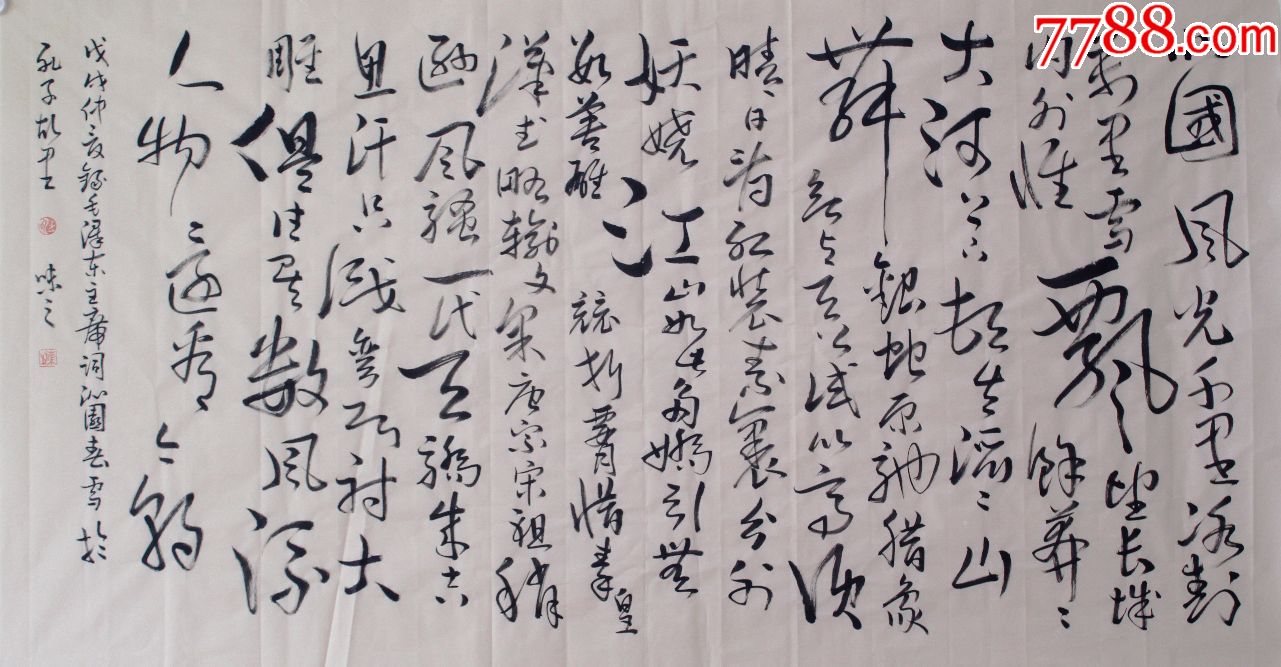 7788.com
國風光千里冰封
萬里雪飄望長城
内外惟餘莽〻
大河上下頓失滔〻山
舞銀蛇原馳腊象
欲與天公試比高須
晴日看紅裝素裹分外
妖嬈江山如此多嬌引無
數英雄競折腰惜秦皇
漢武略輸文采唐宗宋祖稍
遜風騷一代天驕成吉
思汗只識彎弓射大
雕俱往矣數風流
人物還看今朝
戊戌仲夏錄毛澤東主席詞沁園春雪於
孔子故里 味之